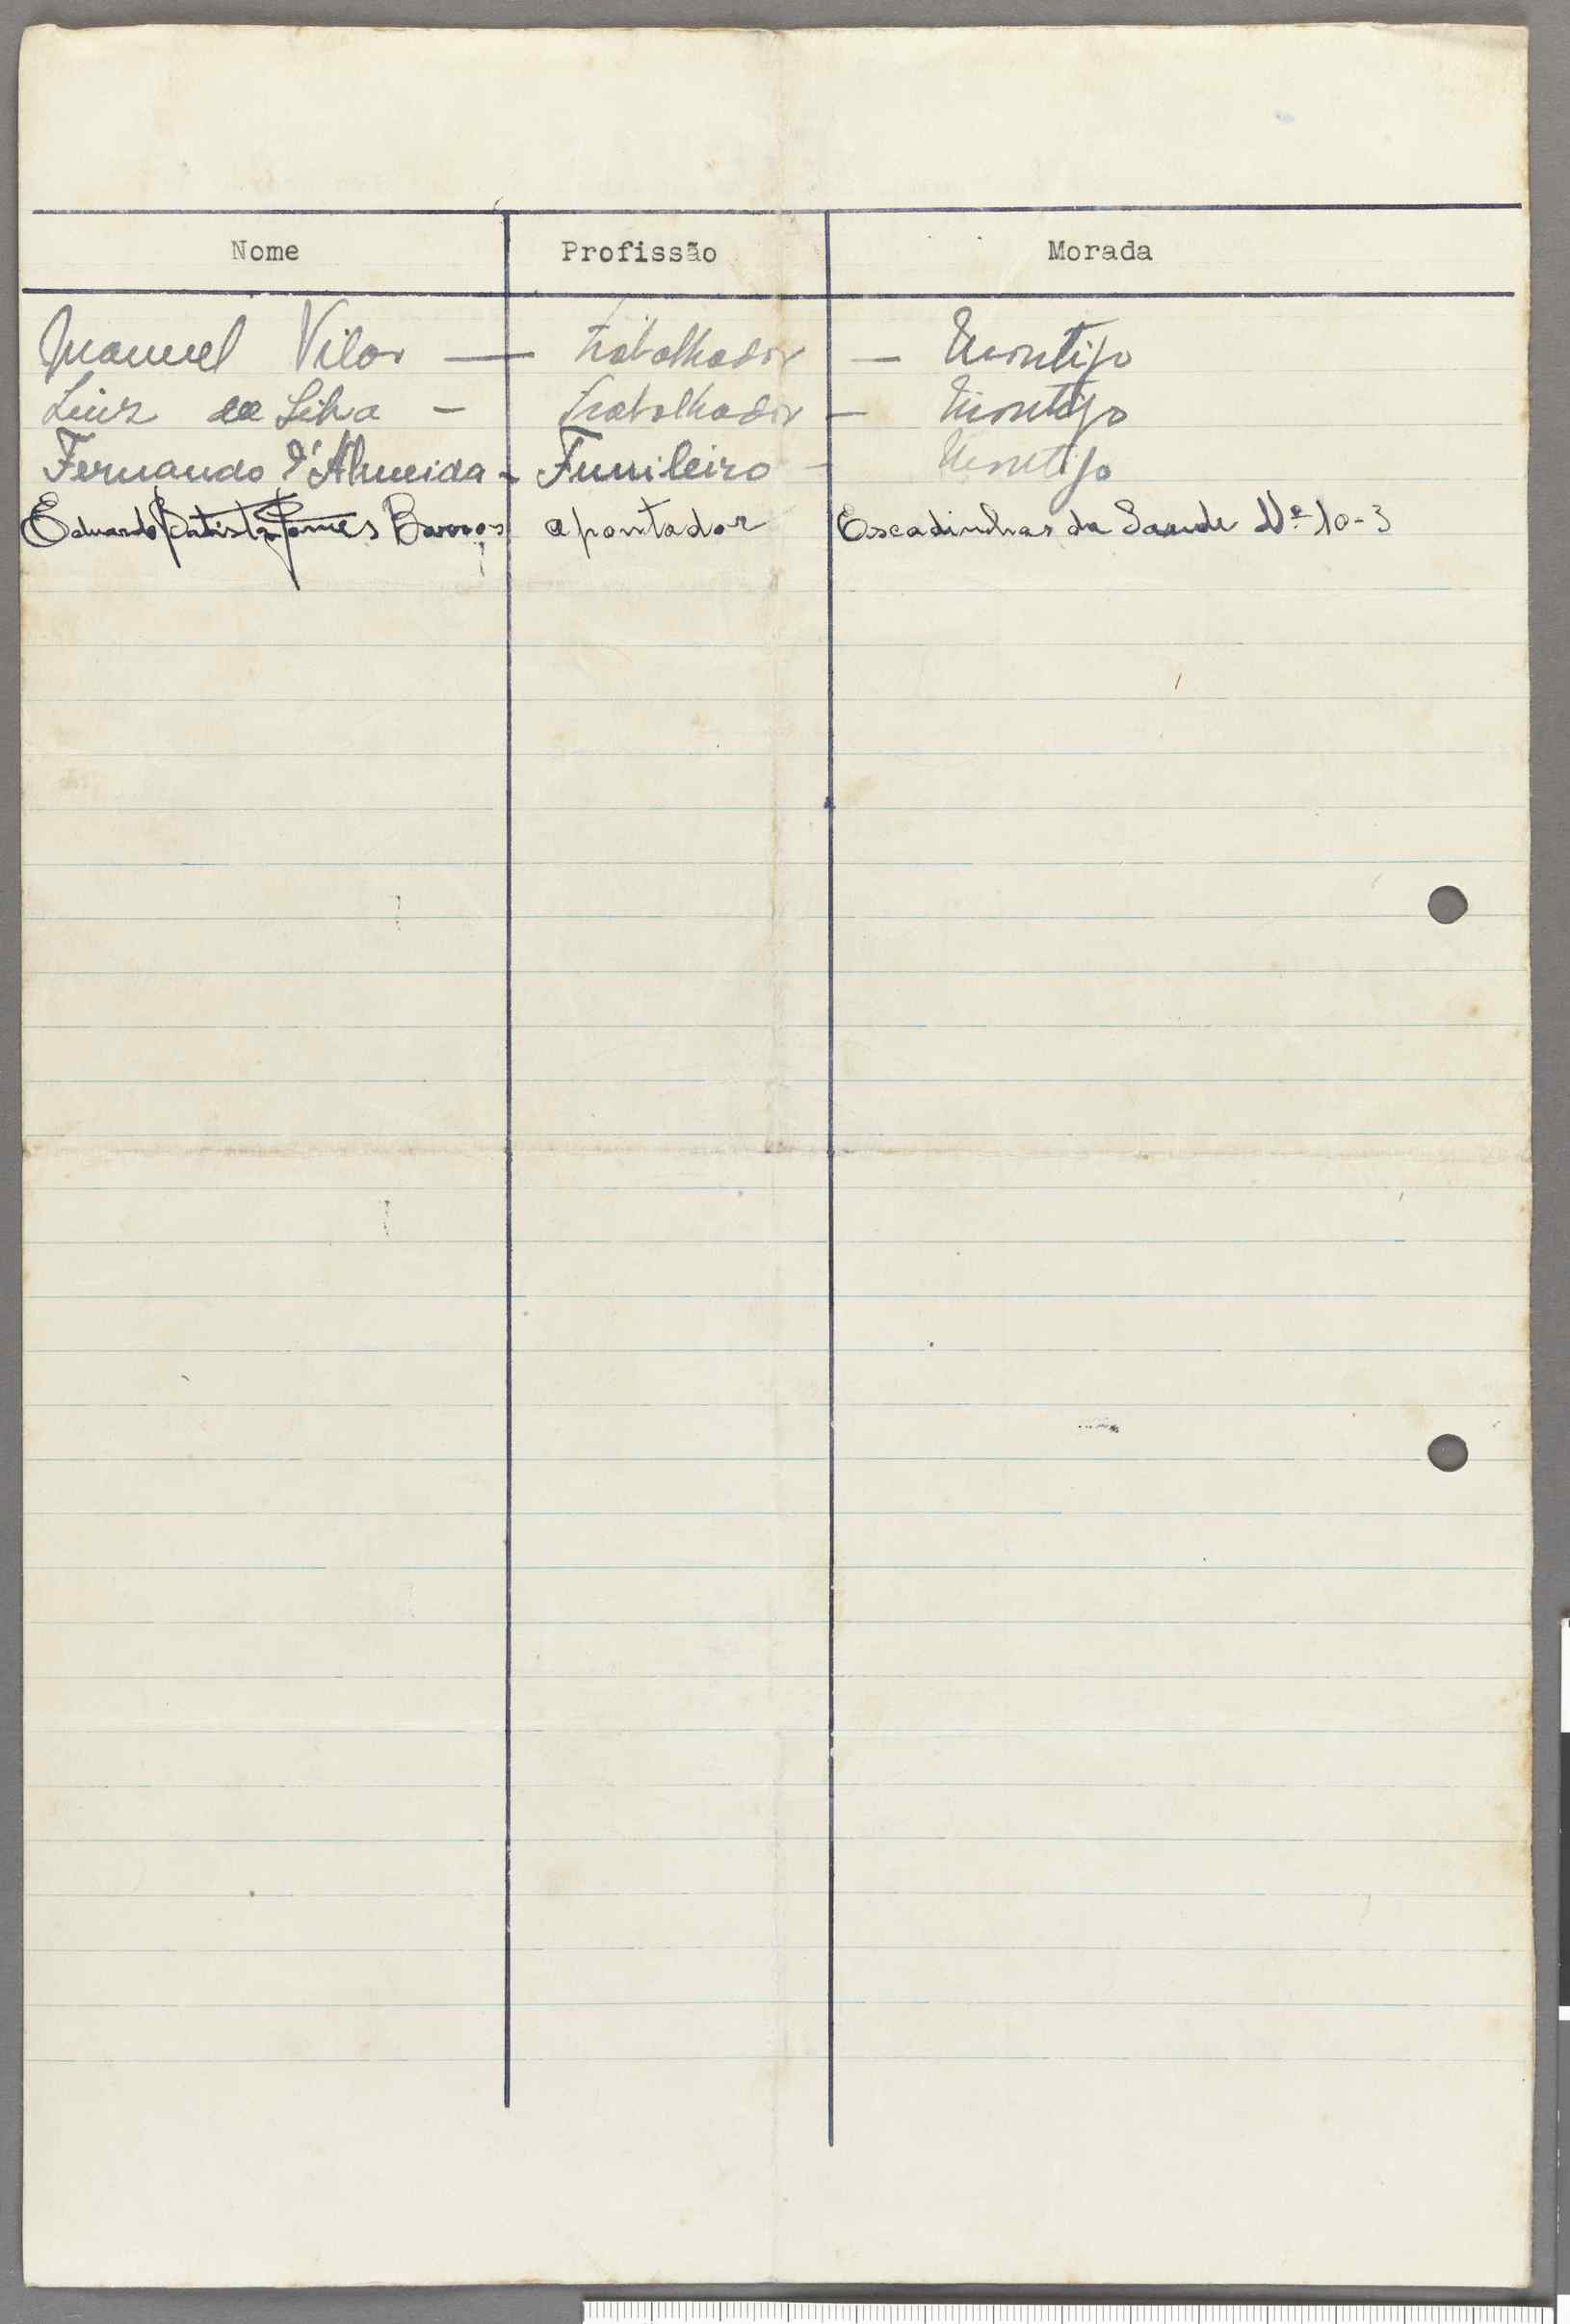 Nome Profissão Morada
Manuel Vilar — trabalhador — Montijo
Luiz da Silva — trabalhador — Montijo
Fernando d'Almeida - Funileiro - Montijo
Eduardo Batista Gomes Barros apontador Escadinhas da Saude Nº 10-3